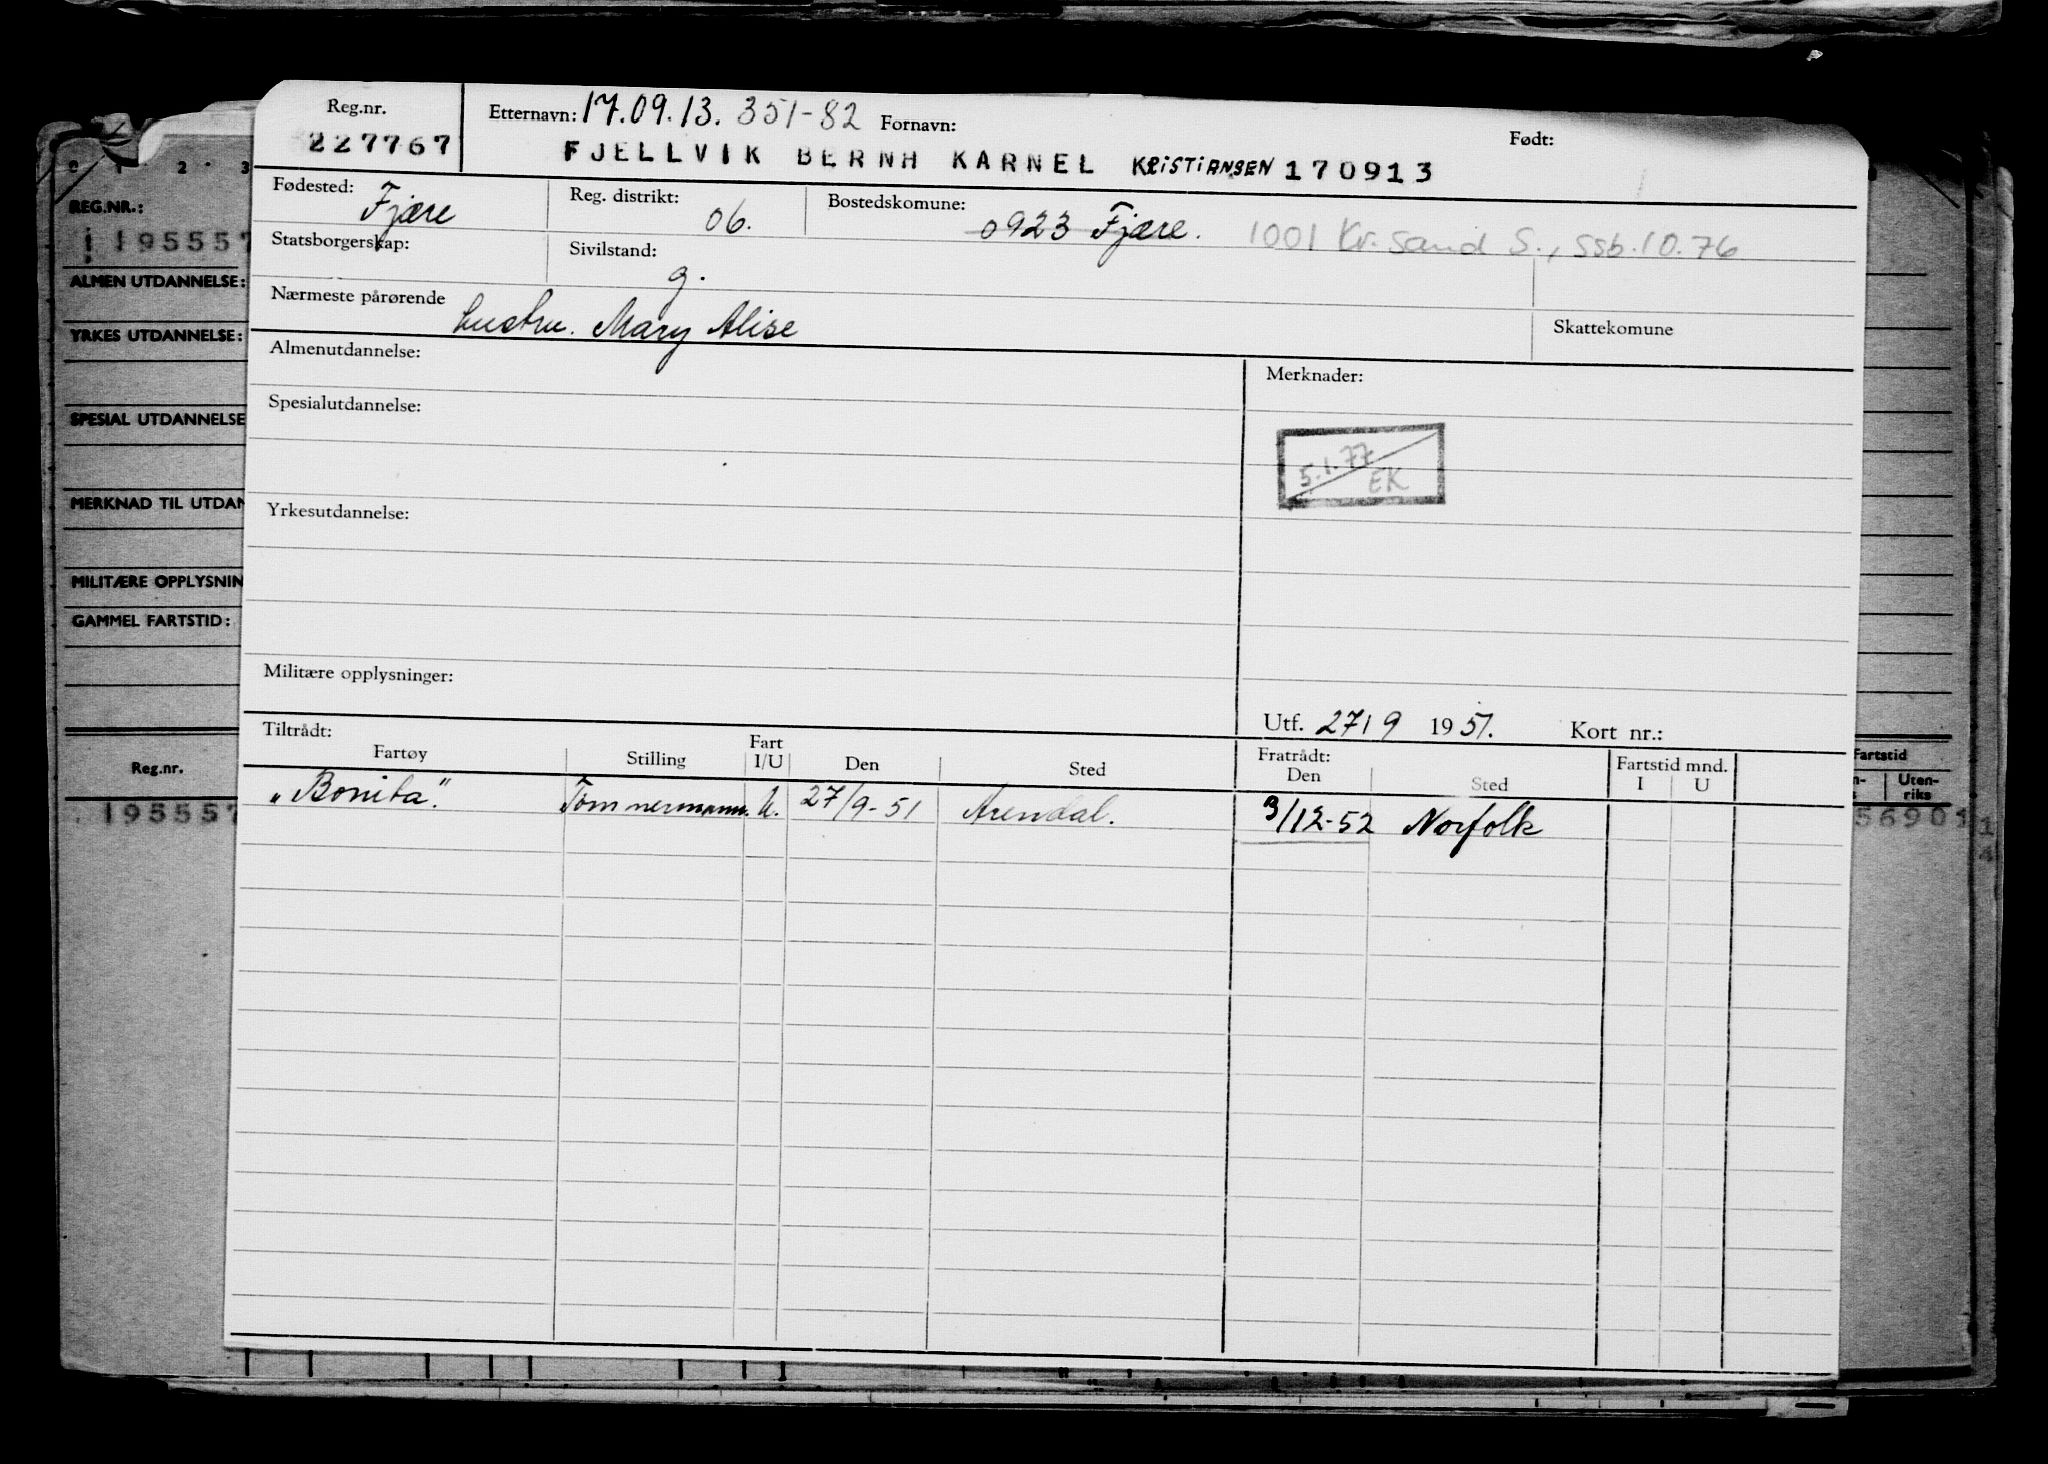 Reg.nr. Etternavn: 17.09.13. 351-82 Fornavn: Født:
227767 FJELLVIK BERNH KARNEL KRISTIANSEN 170913
Fødested: Fjære Reg. distrikt: 06. Bostedskomune: 0923 Fjære. 1001 Kr. sand S., ssb. 10.76
Statsborgerskap: Sivilstand: g.
Nærmeste pårørende hustru. Mary Alise Skattekomune
Almenutdannelse: Merknader:
Spesialutdannelse:
5.1.77
EK
Yrkesutdannelse:
Militære opplysninger:
Utf. 27/9 1951. Kort nr.:
Tiltrådt: Fratrådt:
Fartøy Stilling Fart I/U Den Sted Den Sted Fartstid mnd. I U
"Bonita". Tømmermann. U. 27/9-51 Arendal. 3/12-52 Norfolk
0 1 2 3
REG.NR.:
195557
ALMEN UTDANNELSE:
YRKES UTDANNELSE:
SPESIAL UTDANNELSE
MERKNAD TIL UTDAN
MILITÆRE OPPLYSNIN
GAMMEL FARTSTID:
Reg.nr. Fartstid
Uten-
riks
195557 56901